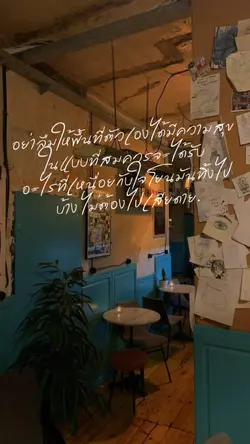 อย่าลืมให้พื้นที่ตัวเองได้มีความสุข
ในแบบที่สมควรจะได้รับ
อะไรที่เหนื่อยกับใจโยนมันทิ้งไป
บ้าง ไม่ต้องไปเสียดาย.